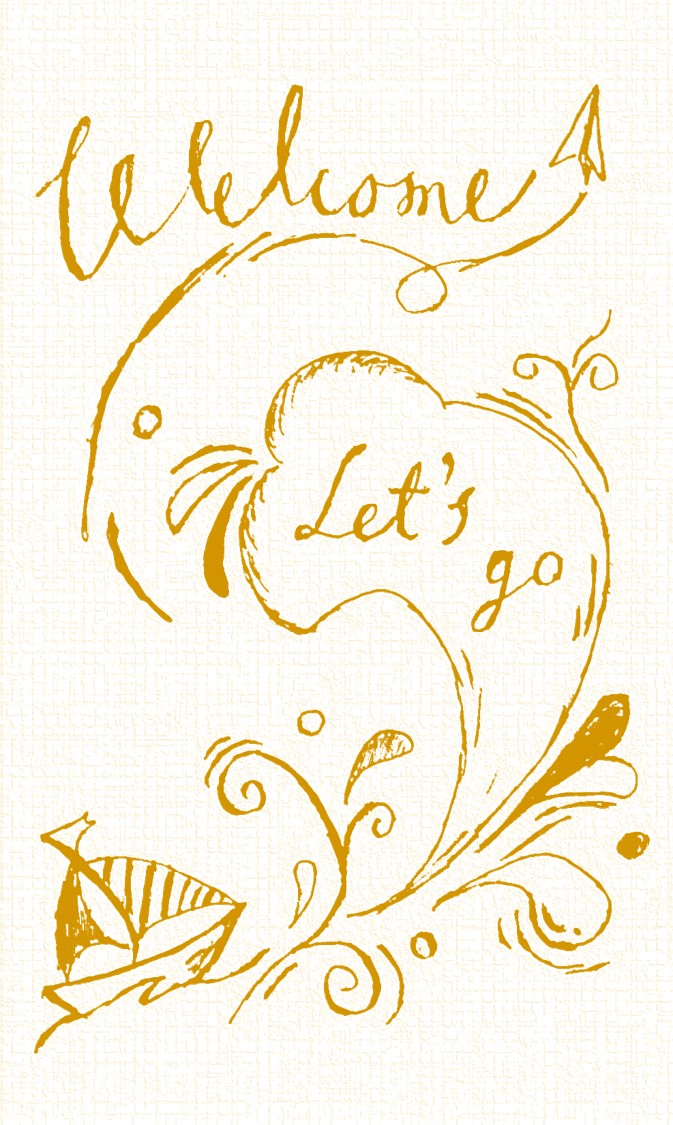 Welcome
Let's
go